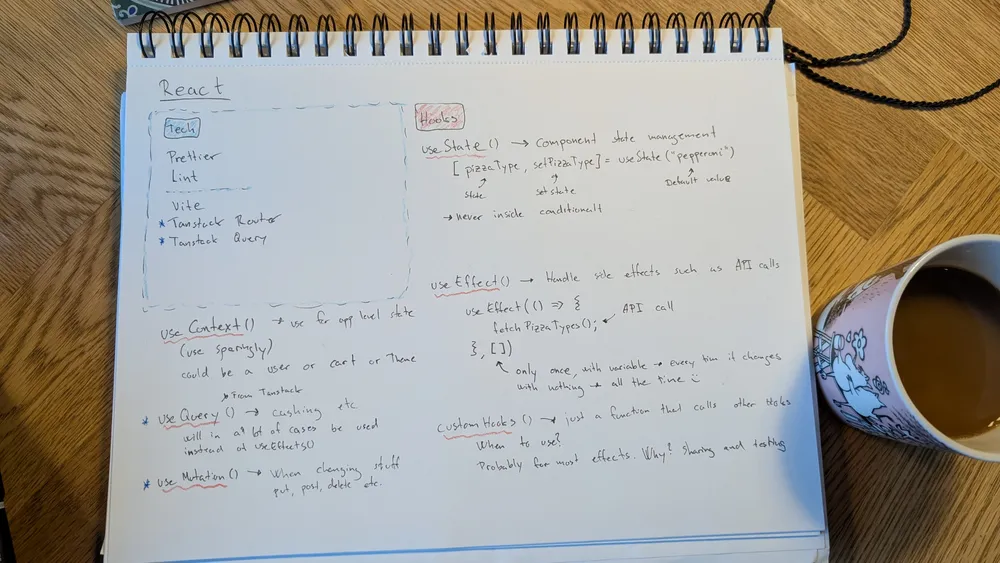 React
Tech
Prettier
Lint
Vite
* Tanstack Router
* Tanstack Query
Hooks
useState () → Component state management
[ pizzaType, setPizzaType ] = useState ("pepperoni")
state
set state
Default value
→ never inside conditionalt
useEffect () → Handle side effects such as API calls
useEffect(() => {
fetchPizzaTypes(); ← API call
}, [])
only once, with variable → every tim it changes
with nothing → all the time :
Custom Hooks () → just a function that calls other Hooks
When to use?
Probably for most effects. Why? Sharing and testing
useContext () → use for app level state
(use sparingly)
could be a user or cart or Theme
→ From Tanstack
* useQuery () → cashing etc
will in a lot of cases be used
instead of useEffects()
* useMutation () → When changing stuff
put, post, delete etc.